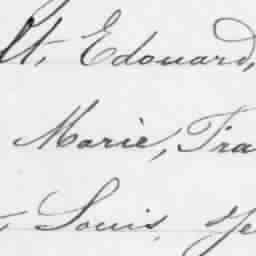 lt, Edouard,
Marie, Fra
Louis, Je